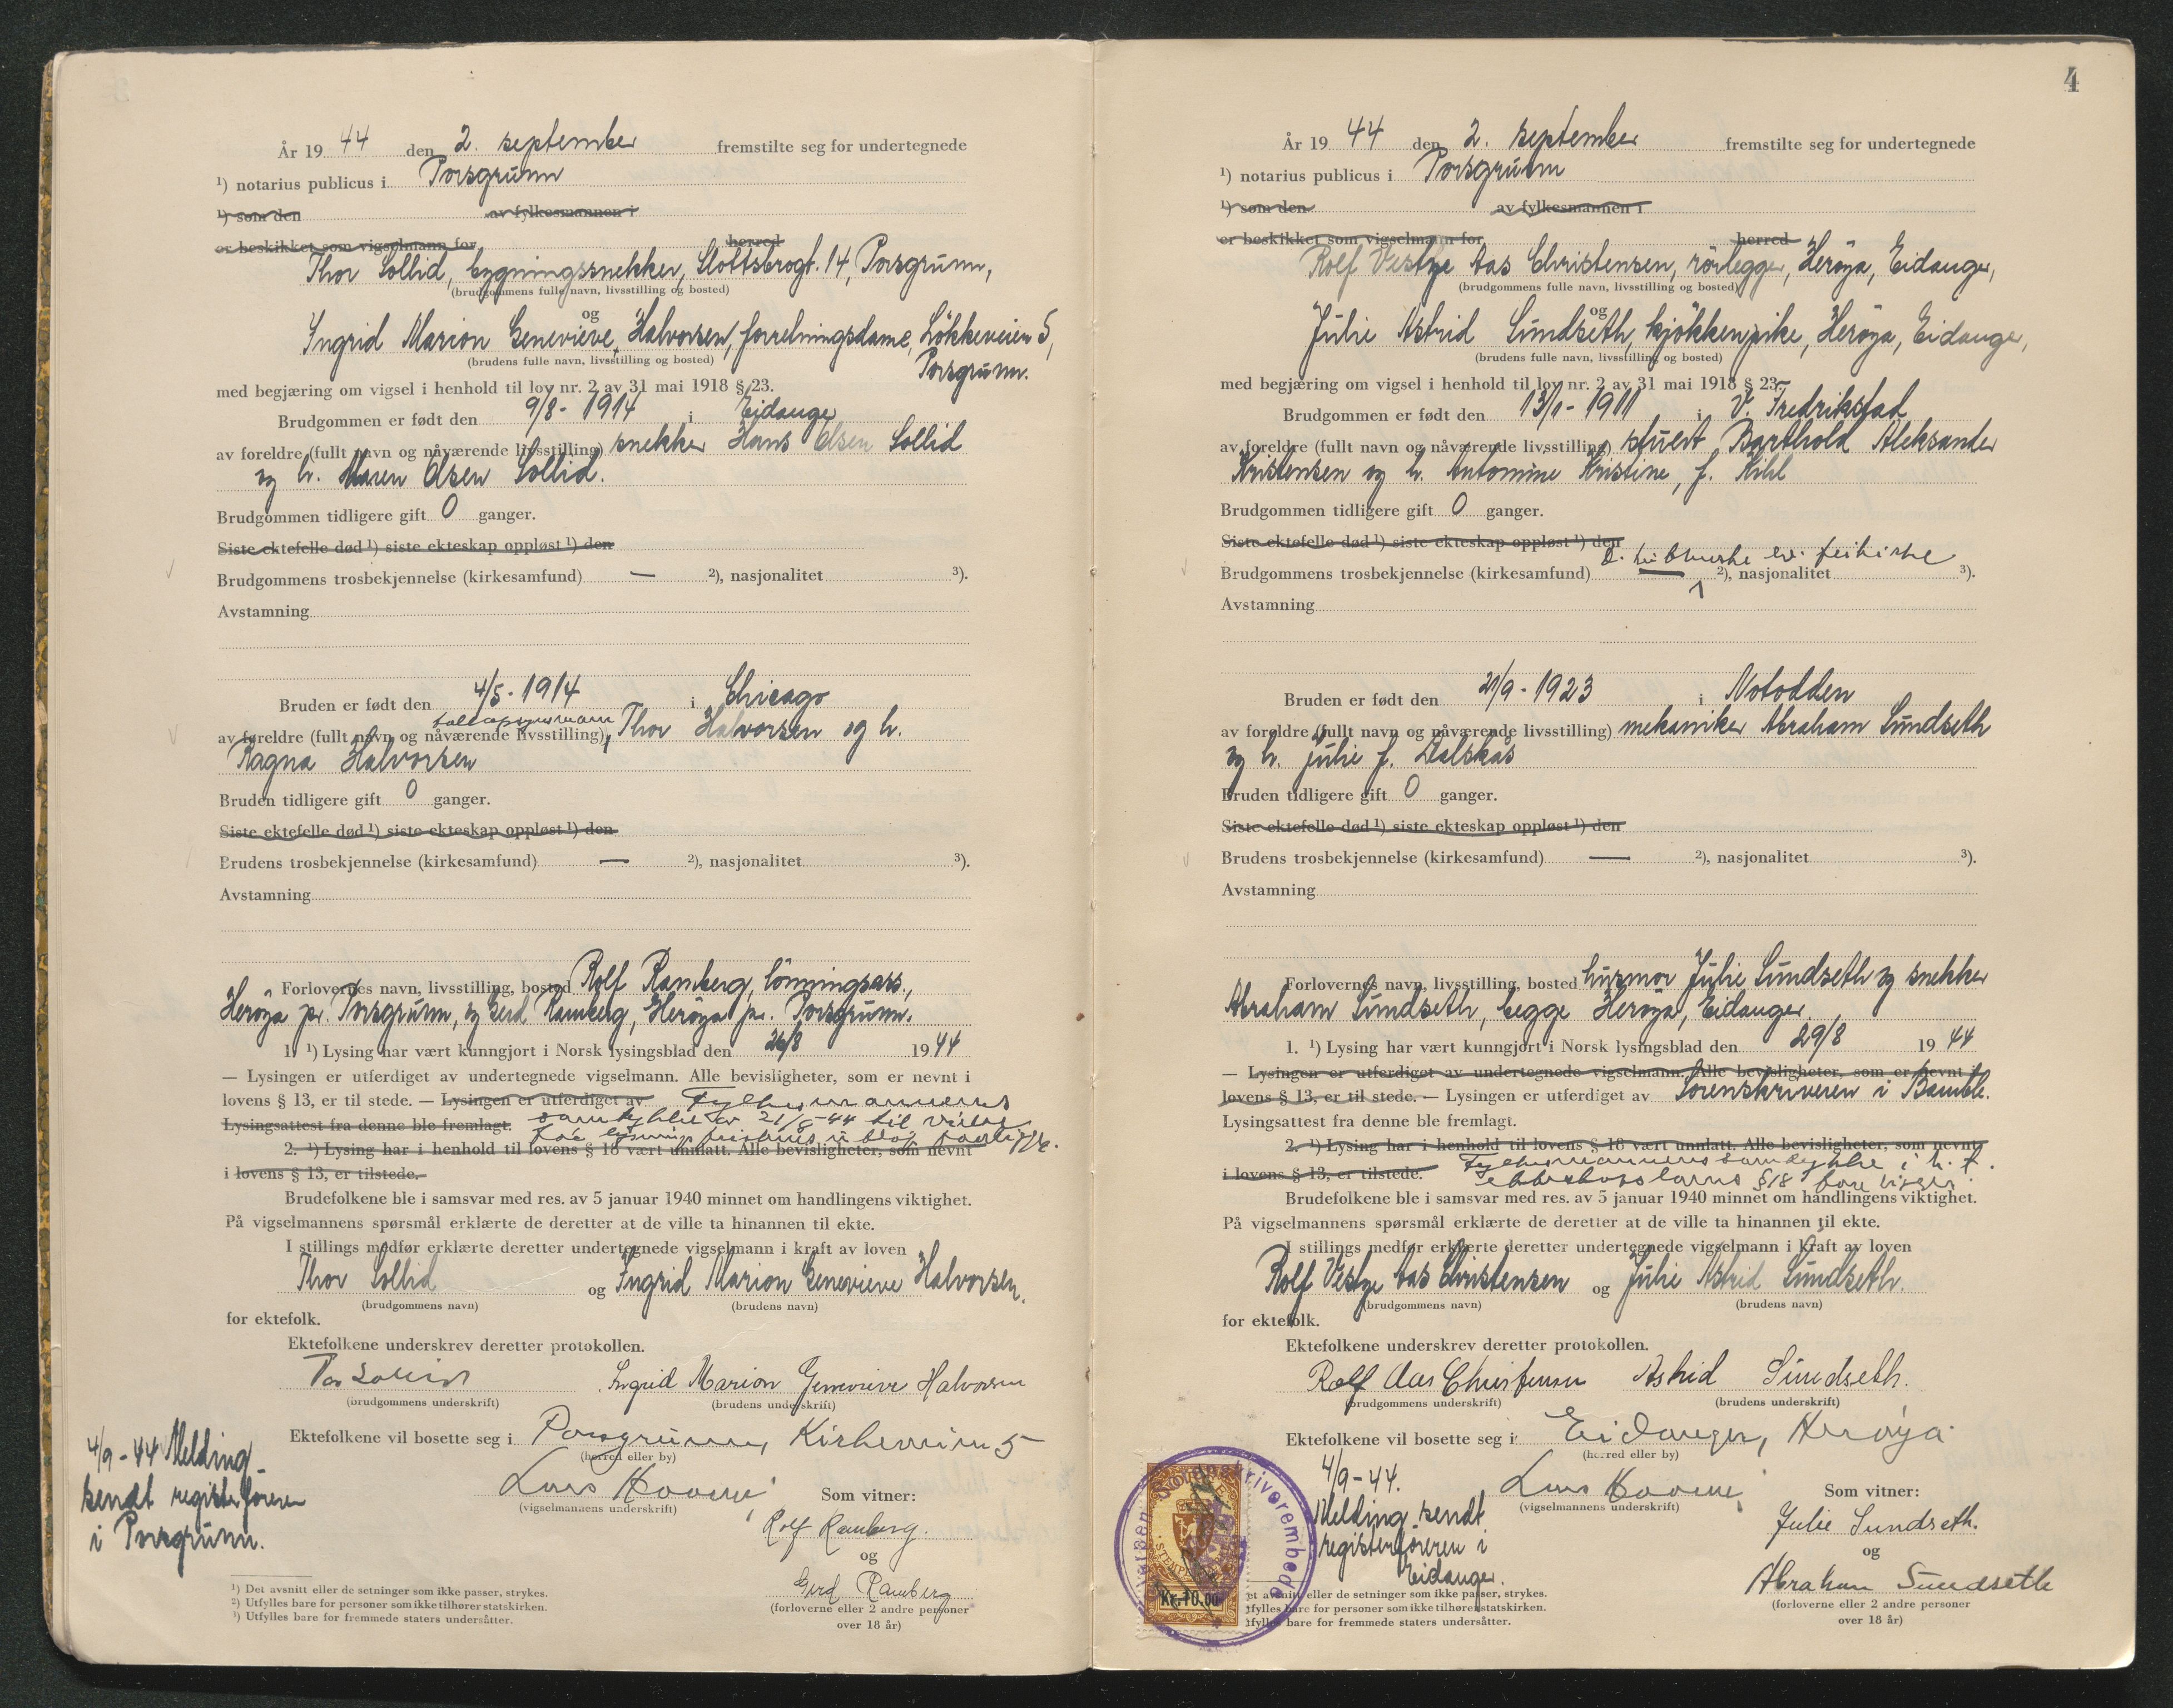 År 19 44 den 2. september fremstilte seg for undertegnede
¹) notarius publicus i Porsgrunn
¹) som den av fylkesmannen i
er beskikket som vigselmann for herred
Thor Sollid, bygningssnekker, Slottsbrogt. 14, Porsgrunn,
(brudgommens fulle navn, livsstilling og bosted)
og
Ingrid Marion Genevieve Halvorsen, forretningsdame, Løkkeveien 5,
(brudens fulle navn, livsstilling og bosted)
Porsgrunn.
med begjæring om vigsel i henhold til lov nr. 2 av 31 mai 1918 § 23.
Brudgommen er født den 9/8 - 1914 i Eidanger
av foreldre (fullt navn og nåværende livsstilling) snekker Hans Olsen Sollid
og h. Maren Olsen Sollid.
Brudgommen tidligere gift 0 ganger.
Siste ektefelle død ¹) siste ekteskap oppløst ¹) den
Brudgommens trosbekjennelse (kirkesamfund) — ²), nasjonalitet ³).
Avstamning
Bruden er født den 4/5 - 1914 i Chicago
av foreldre (fullt navn og nåværende livsstilling), Thor Halvorsen og h.
Ragna Halvorsen
Bruden tidligere gift 0 ganger.
Siste ektefelle død ¹) siste ekteskap oppløst ¹) den
Brudens trosbekjennelse (kirkesamfund) — ²), nasjonalitet ³).
Avstamning
Forlovernes navn, livsstilling, bosted Rolf Ramberg, lönningsass.,
Herøya pr. Porsgrunn, og Gerd Ramberg, Herøya pr. Porsgrunn.
1. ¹) Lysing har vært kunngjort i Norsk lysingsblad den 26/8 19 44
— Lysingen er utferdiget av undertegnede vigselmann. Alle bevisligheter, som er nevnt i
lovens § 13, er til stede. — Lysingen er utferdiget av Fylkesmannens
Lysingsattest fra denne ble fremlagt. samtykke av 21/8-44 til vielse
før lysningsfristens utløp foreligger.
2. ¹) Lysing har i henhold til lovens § 18 vært unnlatt. Alle bevisligheter, som nevnt
i lovens § 13, er tilstede.
Brudefolkene ble i samsvar med res. av 5 januar 1940 minnet om handlingens viktighet.
På vigselmannens spørsmål erklærte de deretter at de ville ta hinannen til ekte.
I stillings medfør erklærte deretter undertegnede vigselmann i kraft av loven
Thor Sollid og Ingrid Marion Genevieve Halvorsen.
(brudgommens navn) (brudens navn)
for ektefolk.
Ektefolkene underskrev deretter protokollen.
Tor Sollid Ingrid Marion Genevieve Halvorsen
(brudgommens underskrift) (brudens underskrift)
Ektefolkene vil bosette seg i Porsgrunn, Kirkeveien 5
(herred eller by)
4/9 - 44 Melding
sendt registerføreren
i Porsgrunn.
(vigselmannens underskrift) Som vitner:
Rolf Ramberg.
og
Gerd Ramberg
(forloverne eller 2 andre personer
over 18 år)
¹) Det avsnitt eller de setninger som ikke passer, strykes.
²) Utfylles bare for personer som ikke tilhører statskirken.
³) Utfylles bare for fremmede staters undersåtter.
4
År 19 44 den 2. september fremstilte seg for undertegnede
¹) notarius publicus i Porsgrunn
¹) som den av fylkesmannen i
er beskikket som vigselmann for herred
Rolf Vestye Aas Christensen, rörlegger, Herøya, Eidanger,
(brudgommens fulle navn, livsstilling og bosted)
og
Julie Astrid Sundseth, kjökkenpike, Herøya, Eidanger,
(brudens fulle navn, livsstilling og bosted)
med begjæring om vigsel i henhold til lov nr. 2 av 31 mai 1918 § 23.
Brudgommen er født den 13/1 - 1911 i V. Fredrikstad
av foreldre (fullt navn og nåværende livsstilling) stuert Barthold Aleksander
Kristensen og h. Antomine Kristine, f. Kihl
Brudgommen tidligere gift 0 ganger.
Siste ektefelle død ¹) siste ekteskap oppløst ¹) den
Brudgommens trosbekjennelse (kirkesamfund) — ²), nasjonalitet ³).
Avstamning
Bruden er født den 21/9 - 1923 i Notodden
av foreldre (fullt navn og nåværende livsstilling) mekaniker Abraham Sundseth
og h. Julie f. Dalskås
Bruden tidligere gift 0 ganger.
Siste ektefelle død ¹) siste ekteskap oppløst ¹) den
Brudens trosbekjennelse (kirkesamfund) — ²), nasjonalitet ³).
Avstamning
Forlovernes navn, livsstilling, bosted husmor Julie Sundseth og snekker
Abraham Sundseth, begge Herøya, Eidanger.
1. ¹) Lysing har vært kunngjort i Norsk lysingsblad den 29/8 19 44
— Lysingen er utferdiget av undertegnede vigselmann. Alle bevisligheter, som er nevnt i
lovens § 13, er til stede. — Lysingen er utferdiget av Sorenskriveren i Bamble.
Lysingsattest fra denne ble fremlagt.
2. ¹) Lysing har i henhold til lovens § 18 vært unnlatt. Alle bevisligheter, som nevnt
i lovens § 13, er tilstede. Fylkesmannens samtykke i h. t.
ekteskapslovens § 18 foreligger.
Brudefolkene ble i samsvar med res. av 5 januar 1940 minnet om handlingens viktighet.
På vigselmannens spørsmål erklærte de deretter at de ville ta hinannen til ekte.
I stillings medfør erklærte deretter undertegnede vigselmann i kraft av loven
Rolf Vestye Aas Christensen og Julie Astrid Sundseth.
(brudgommens navn) (brudens navn)
for ektefolk.
Ektefolkene underskrev deretter protokollen.
Rolf Aas Christensen Astrid Sundseth.
(brudgommens underskrift) (brudens underskrift)
Ektefolkene vil bosette seg i Eidanger, Herøya
(herred eller by)
4/9 - 44.
Melding sendt
registerføreren i
Eidanger.
(vigselmannens underskrift) Som vitner:
Julie Sundseth.
og
Abraham Sundseth
(forloverne eller 2 andre personer
over 18 år)
Kr. 10.00
et avsnitt eller de setninger som ikke passer, strykes.
fylles bare for personer som ikke tilhører statskirken.
fylles bare for fremmede staters undersåtter.